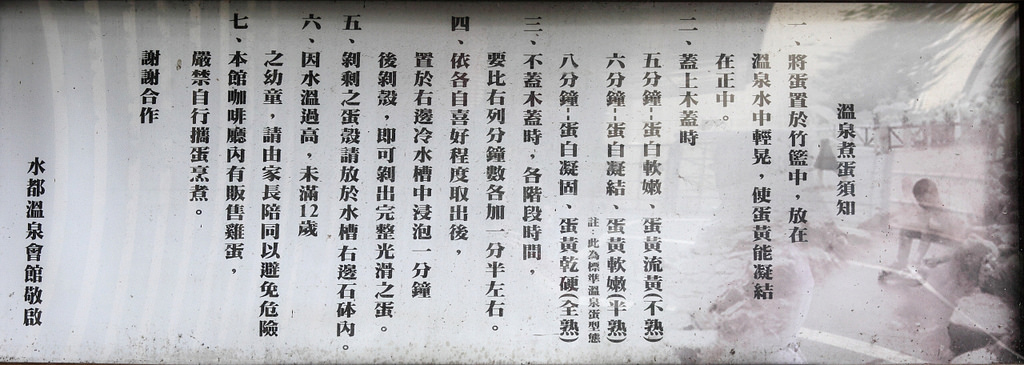 溫泉煮蛋須知
一、將蛋置於竹籃中，放在
溫泉水中輕晃，使蛋黃能凝結
在正中。
二、蓋上木蓋時
五分鐘--蛋白軟嫩、蛋黃流黃(不熟)
六分鐘--蛋白凝結、蛋黃軟嫩(半熟)
註：此為標準溫泉蛋型態
八分鐘--蛋白凝固、蛋黃乾硬(全熟)
三、不蓋木蓋時，各階段時間，
要比右列分鐘數各加一分半左右。
四、依各自喜好程度取出後，
置於右邊冷水槽中浸泡一分鐘
後剝殼，即可剝出完整光滑之蛋。
五、剝剩之蛋殼請放於水槽右邊石砵內。
六、因水溫過高，未滿12歲
之幼童，請由家長陪同以避免危險
七、本館咖啡廳內有販售雞蛋，
嚴禁自行攜蛋烹煮。
謝謝合作
水都溫泉會館敬啟